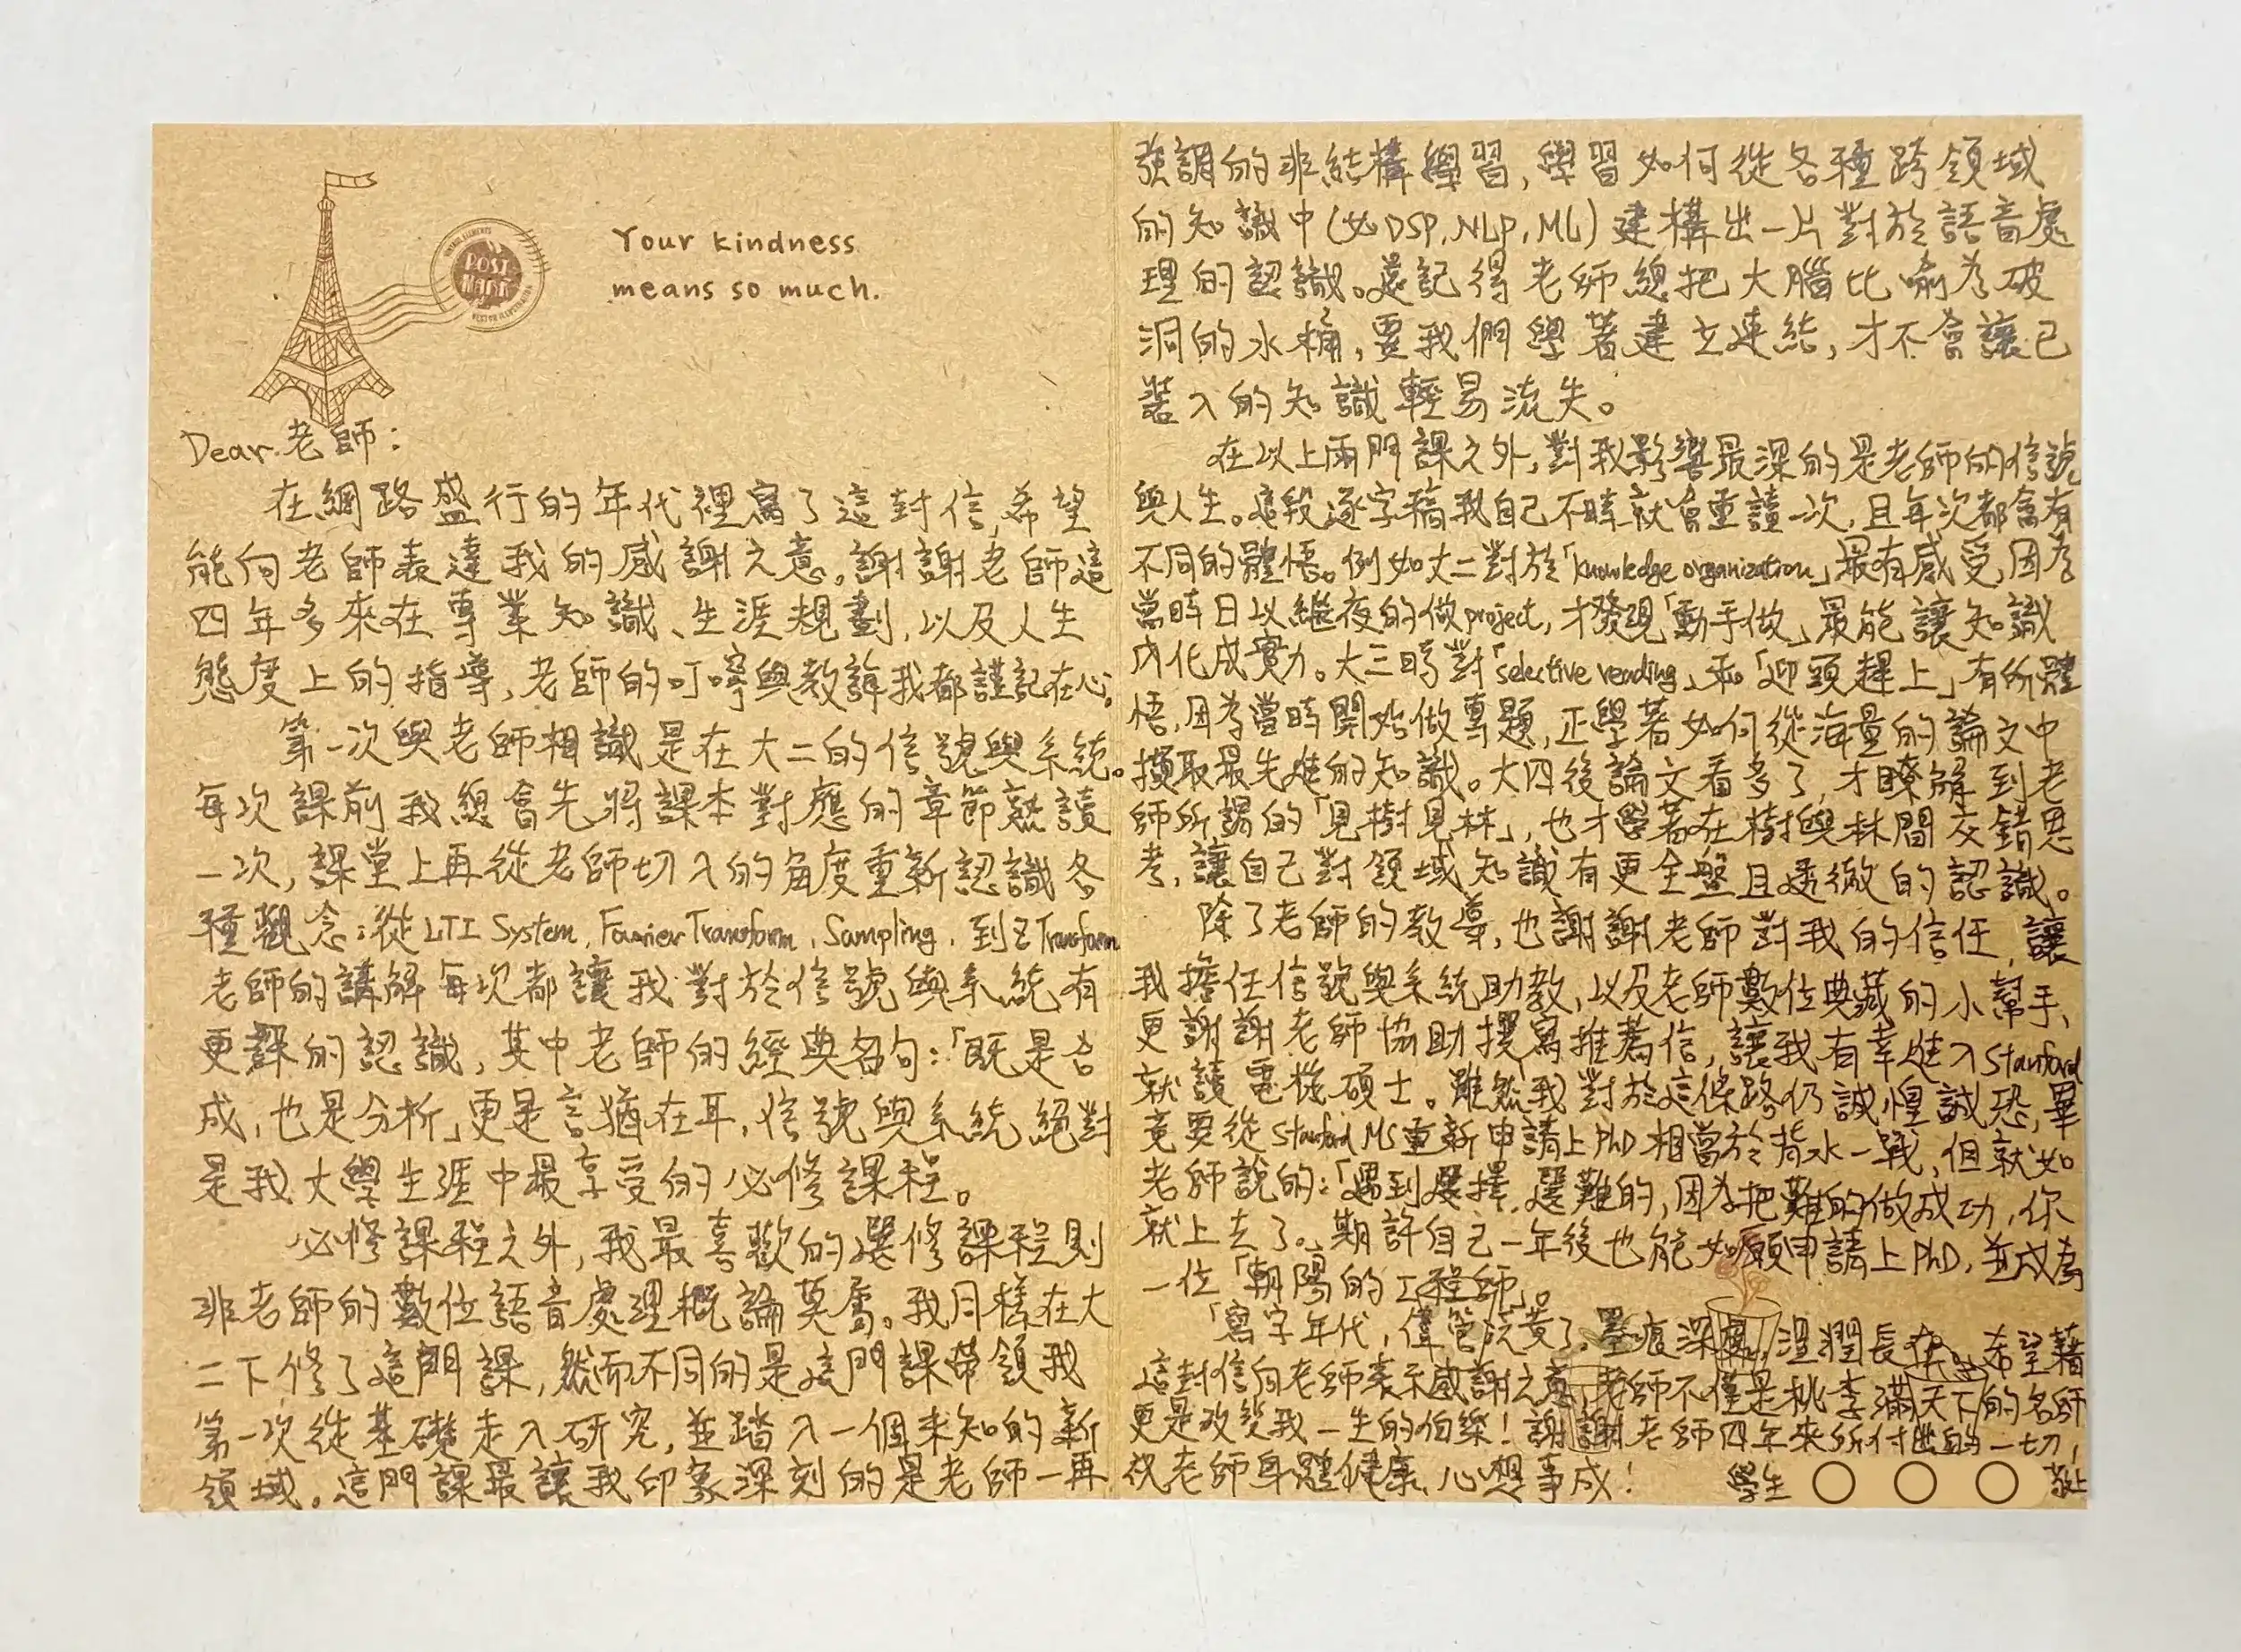 POST
MARK
Your kindness
means so much.
Dear 老師：
在網路盛行的年代裡寫了這封信，希望
能向老師表達我的感謝之意。謝謝老師這
四年多來在專業知識、生涯規劃，以及人生
態度上的指導，老師的叮嚀與教誨我都謹記在心。
第一次與老師相識是在大二的信號與系統。
每次課前我總會先將課本對應的章節熟讀
一次，課堂上再從老師切入的角度重新認識各
種觀念：從 LTI System, Fourier Transform, Sampling, 到 Z Transform
老師的講解每次都讓我對於信號與系統有
更深的認識，其中老師的經典名句：「既是合
成，也是分析」更是言猶在耳，信號與系統絕對
是我大學生涯中最享受的必修課程。
必修課程之外，我最喜歡的選修課程則
非老師的數位語音處理概論莫屬。我同樣在大
二下修了這門課，然而不同的是這門課帶領我
第一次從基礎走入研究，並踏入一個未知的新
領域。這門課最讓我印象深刻的是老師一再
強調的非結構學習，學習如何從各種跨領域
的知識中(如DSP, NLP, ML) 建構出一片對於語音處
理的認識。還記得老師總把大腦比喻為破
洞的水桶，要我們學著建立連結，才不會讓已
裝入的知識輕易流失。
在以上兩門課之外，對我影響最深的是老師的信號
與人生。這段逐字稿我自己不時就會重讀一次，且每次都會有
不同的體悟。例如大二對於「knowledge organization」最有感受，因為
當時日以繼夜的做project，才發現「動手做」最能讓知識
內化成實力。大三時對「selective reading」和「迎頭趕上」有所體
悟，因為當時開始做專題，正學著如何從海量的論文中
擷取最先進的知識。大四後論文看多了，才瞭解到老
師所謂的「見樹見林」，也才學著在樹與林間交錯思
考，讓自己對領域知識有更全盤且透徹的認識。
除了老師的教導，也謝謝老師對我的信任，讓
我擔任信號與系統助教，以及老師數位典藏的小幫手、
更謝謝老師協助撰寫推薦信，讓我有幸進入Stanford
就讀電機碩士。雖然我對於這條路仍誠惶誠恐，畢
竟要從 Stanford MS重新申請上PhD相當於背水一戰，但就如
老師說的：「遇到選擇，選難的，因為把難的做成功，你
就上去了。」期許自己一年後也能如願申請上PhD，並成為
一位「朝陽的工程師」。
「寫字年代，儘管泛黃了，墨痕深處，溫潤長在。」希望藉
這封信向老師表示感謝之意，老師不僅是桃李滿天下的名師
更是改變我一生的伯樂！謝謝老師四年來所付出的一切，
祝老師身體健康、心想事成！
學生 〇 〇 〇 敬上